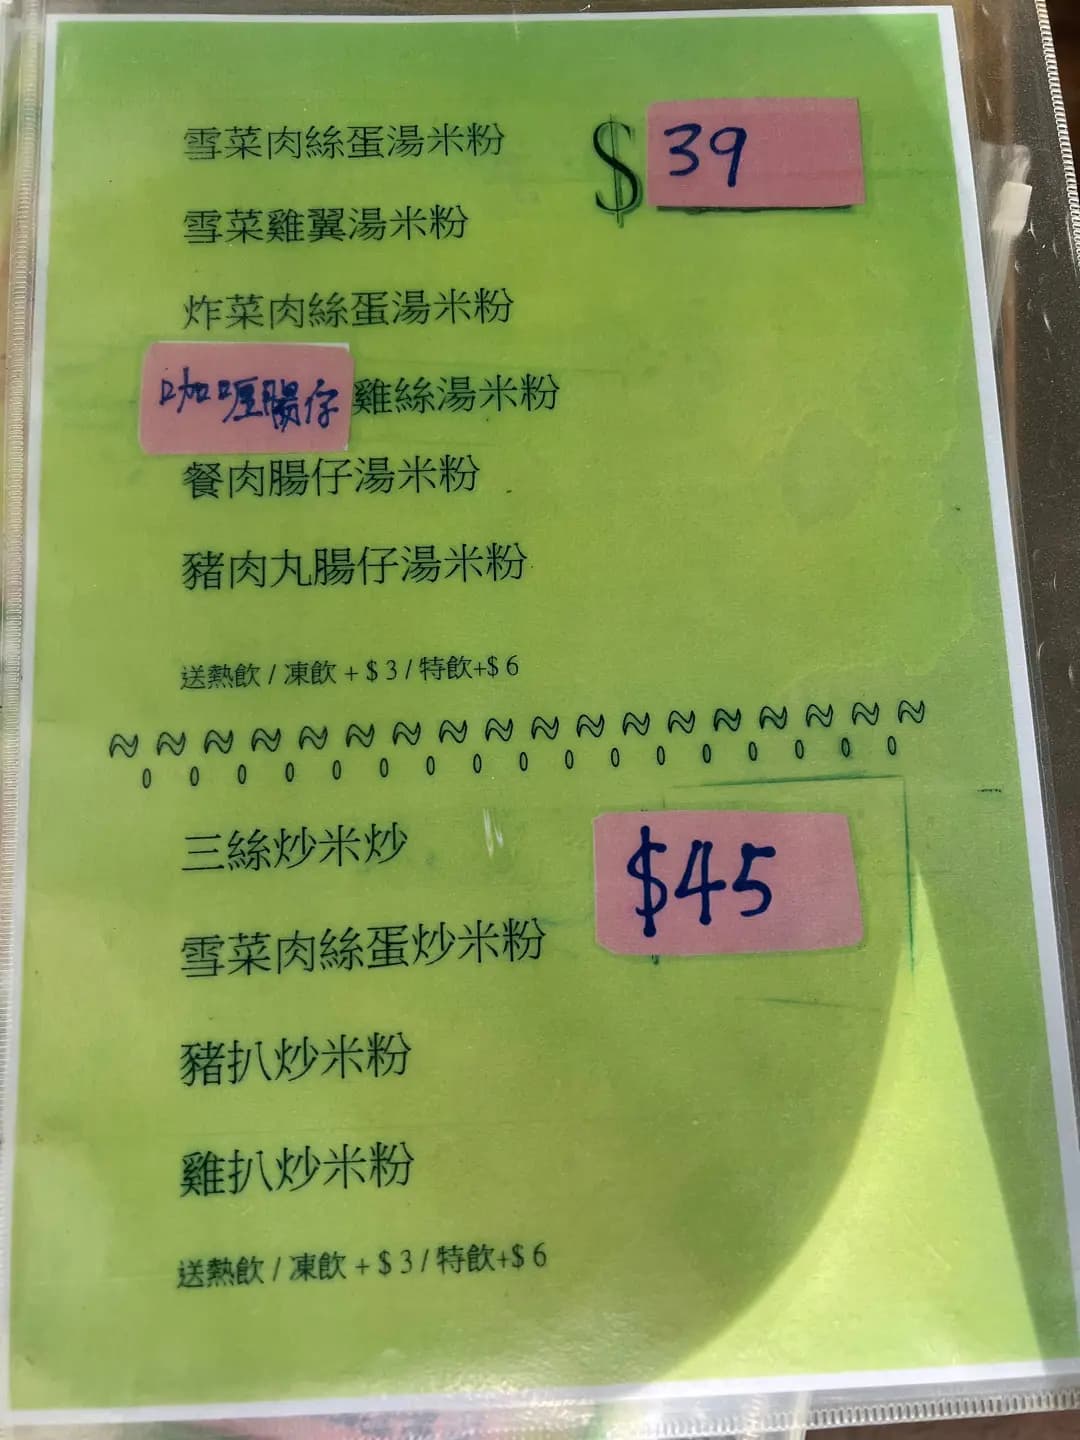 雪菜肉絲蛋湯米粉 $ 39
雪菜雞翼湯米粉
炸菜肉絲蛋湯米粉
咖喱腸仔雞絲湯米粉
餐肉腸仔湯米粉
豬肉丸腸仔湯米粉
送熱飲 / 凍飲 + $ 3 / 特飲+$ 6
三絲炒米炒 $45
雪菜肉絲蛋炒米粉
豬扒炒米粉
雞扒炒米粉
送熱飲 / 凍飲 + $ 3 / 特飲+$ 6